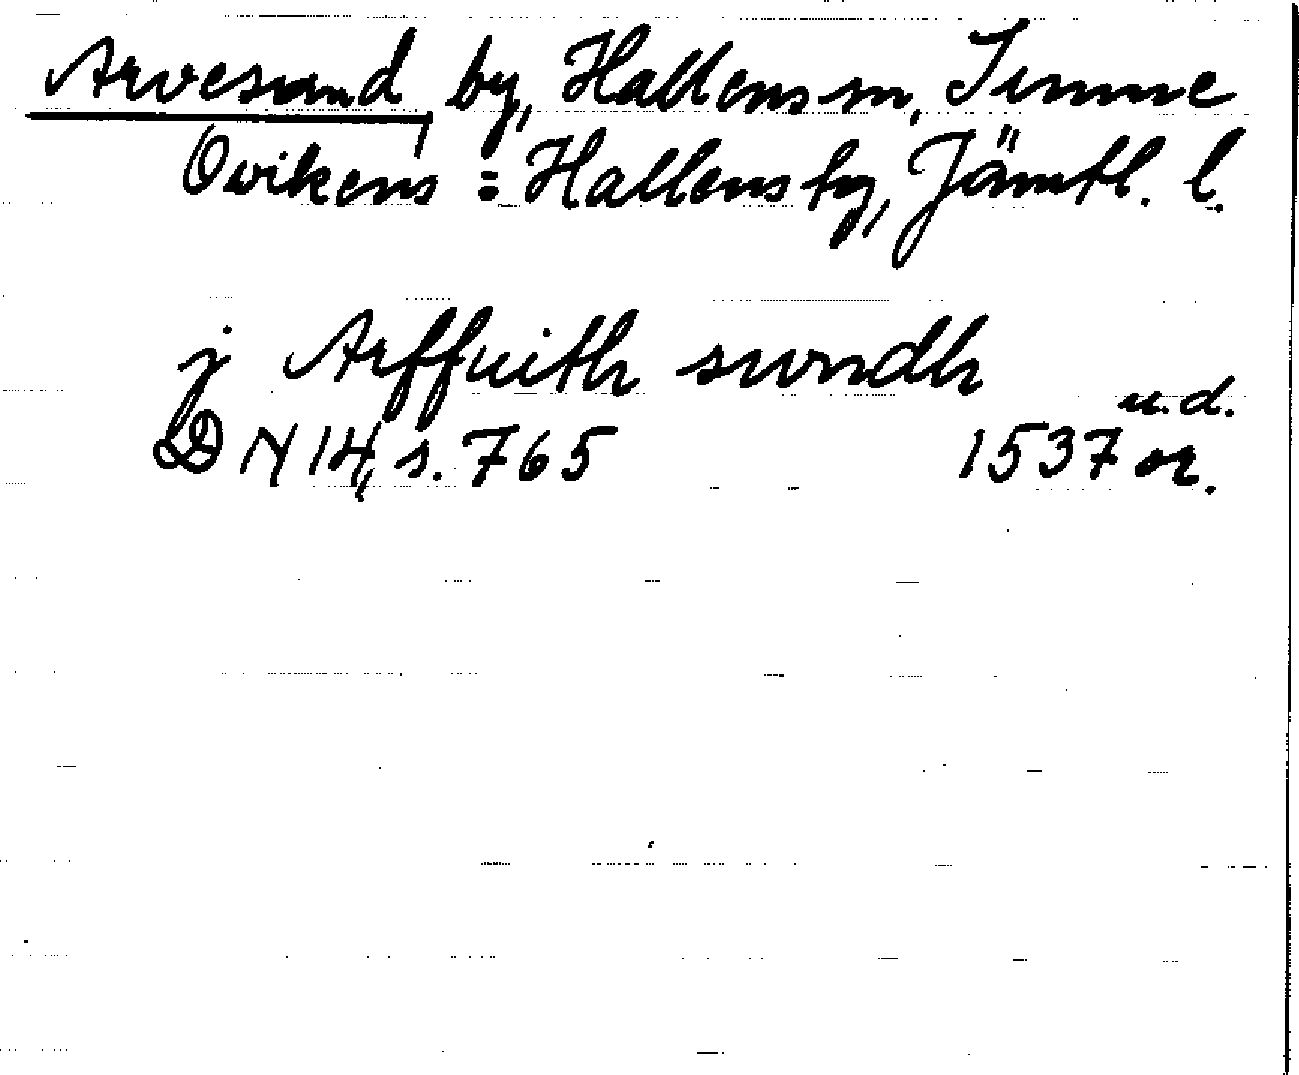 Arvesund, by, Hallens sn, Sunne
Ovikens = Hallens tg, Jämtl. l.
j Arffuith swndh
u.d.
DN 14, s. 765 1537 or.